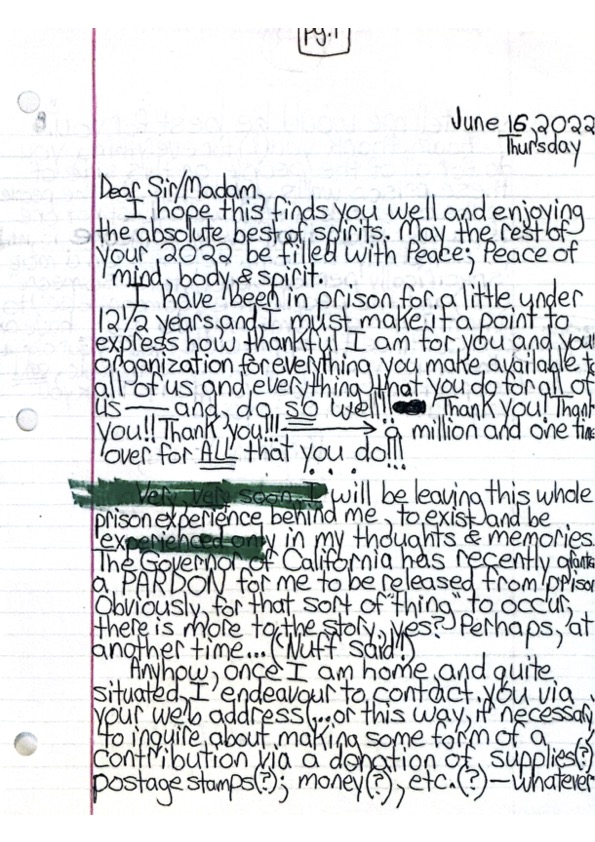 pg.1
June 16, 2022
Thursday
Dear Sir/Madam,
I hope this finds you well and enjoying
the absolute best of spirits. May the rest of
your 2022 be filled with Peace; Peace of
mind, body & spirit.
I have been in prison for a little under
12 1/2 years and I must make it a point to
express how thankful I am for you and your
organization for everything you make available to
all of us and everything that you do for all of
us — and do so well!! Thank you! Thank
you!! Thank you!!! → a million and one time
over for ALL that you do!!!
Very, very soon, I will be leaving this whole
prison experience behind me, to exist and be
experienced only in my thoughts & memories.
The Governor of California has recently
a PARDON for me to be released from prison
Obviously, for that sort of "thing" to occur,
there is more to the story, yes? Perhaps, at
another time... ('Nuff said!)
Anyhow, once I am home and quite
situated, I endeavour to contact you via
your web address (...or this way, if necessary
to inquire about making some form of a
contribution via a donation of supplies(?)
postage stamps(?); money(?), etc.(?) — whatever